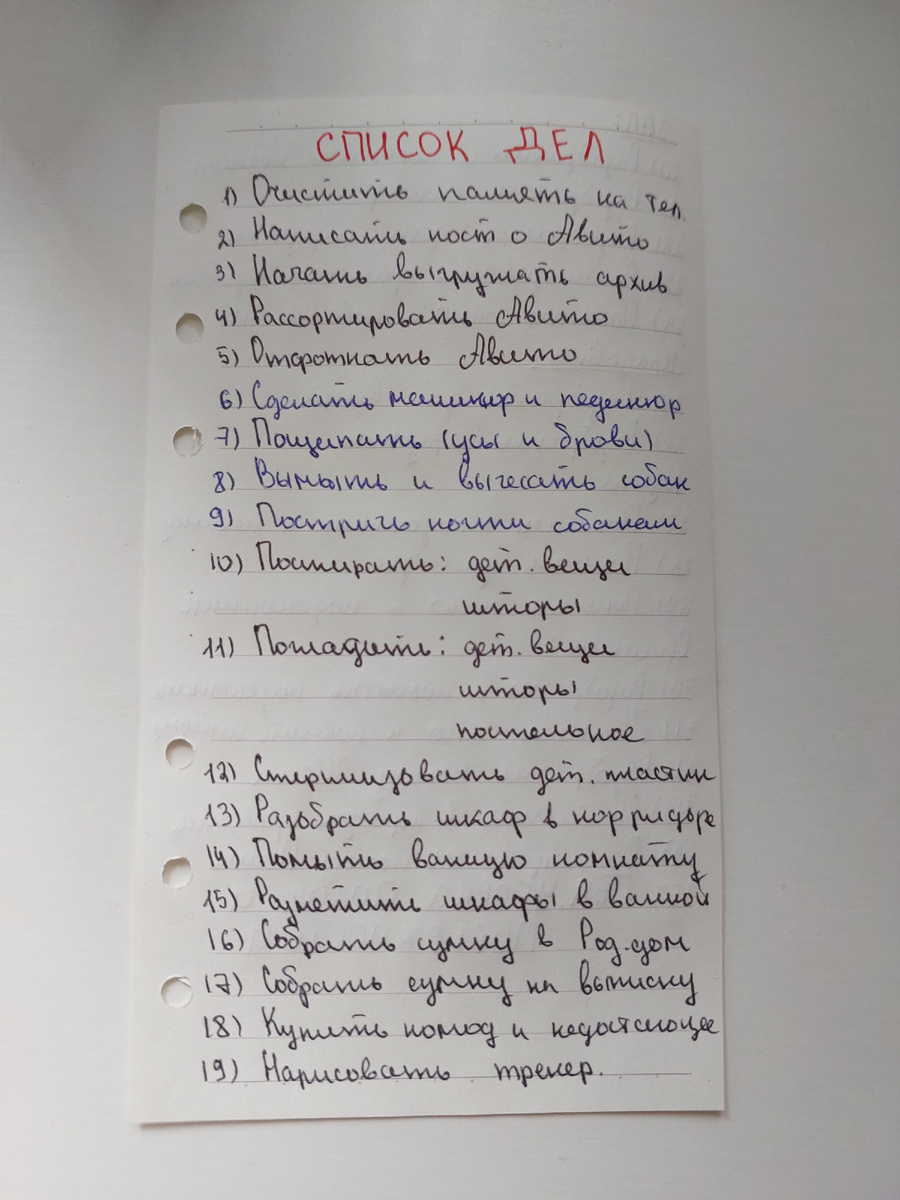 СПИСОК ДЕЛ
1) Очистить память на тел.
2) Написать пост о Авито
3) Начать выгружать архив
4) Рассортировать Авито
5) Отфоткать Авито
6) Сделать маникюр и педикюр
7) Пощипать (усы и брови)
8) Вымыть и вычесать собак
9) Постричь когти собакам
10) Постирать: дет. вещи
шторы
11) Погладить: дет. вещи
шторы
постельное
12) Стерилизовать дет. пластик
13) Разобрать шкаф в корридоре
14) Помыть ванную комнату
15) Разметить шкафы в ванной
16) Собрать сумку в Род.дом
17) Собрать сумку на выписку
18) Купить комод и недостающее
19) Нарисовать трекер.